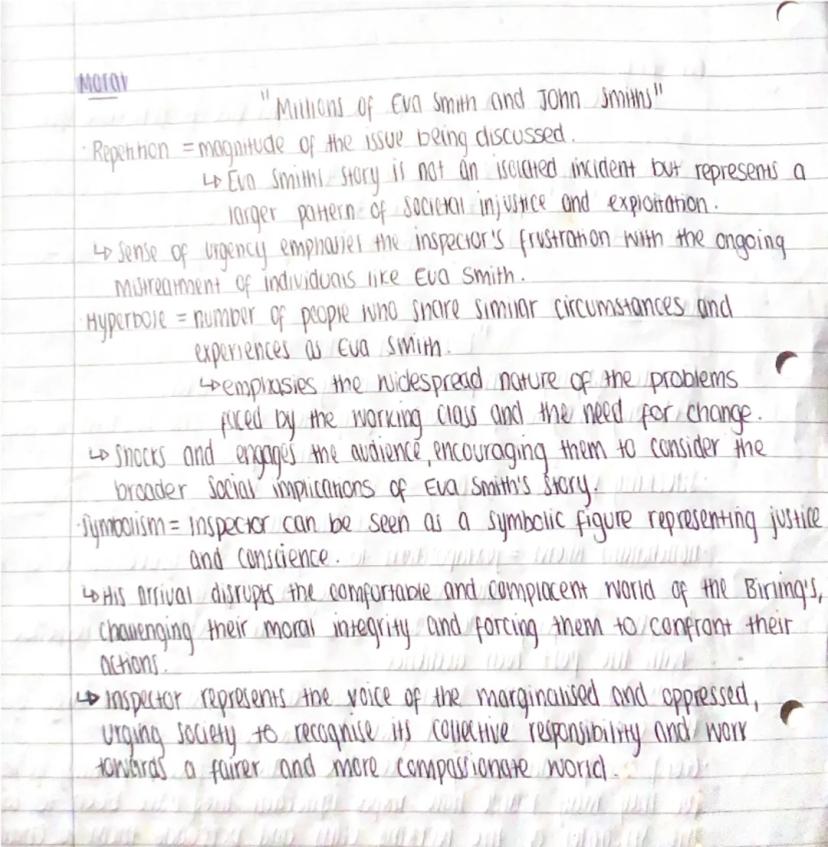 Moral
"Millions of Eva Smith and John Smiths"
· Repetition = magnitude of the issue being discussed.
↳ Eva Smiths story is not an isolated incident but represents a
larger pattern of societal injustice and exploitation.
↳ Sense of urgency emphasies the inspector's frustration with the ongoing
mistreatment of individuals like Eva Smith.
· Hyperbole = number of people who share similar circumstances and
experiences as Eva Smith.
↳ emphasies the widespread nature of the problems
faced by the working class and the need for change.
↳ Shocks and engages the audience, encouraging them to consider the
broader social implications of Eva Smith's story.
· Symbolism = Inspector can be seen as a symbolic figure representing justice
and conscience.
↳ His arrival disrupts the comfortable and complacent world of the Birling's,
challenging their moral integrity and forcing them to confront their
actions.
↳ Inspector represents the voice of the marginalised and oppressed,
urging society to recognise its collective responsibility and work
towards a fairer and more compassionate world.